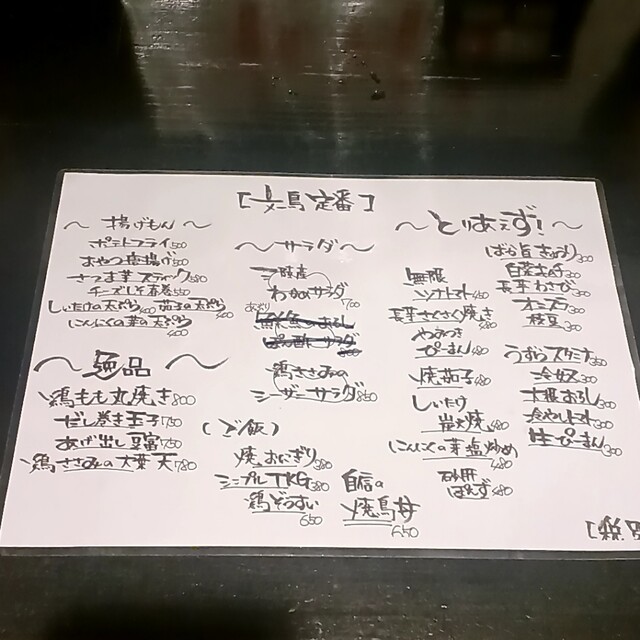 定番]
〜 揚げもん 〜
ポテトフライ 500
おやつ唐揚げ 500
さつま芋スティック 580
チーズしそ春巻 550
しいたけの天ぷら 400 茄子の天ぷら 400
にんにくの芽の天ぷら 400
〜 逸品 〜
鶏もも丸焼き 800
だし巻き玉子 750
あげ出し豆富 750
鶏ささみの大葉天 780
〜 サラダ 〜
三陸産
わかめサラダ 700
鶏ささみの
シーザーサラダ 850
(ご飯)
焼おにぎり 380
シンプルTKG 380
鶏ぞうすい 650
自信の
焼鳥丼 650
〜 とりあえず! 〜
無限
ツナトマト 480
長芋さくさく焼き 480
やみつき
ぴーまん 480
焼茄子 480
しいたけ
炭火焼 480
にんにくの芽塩炒め 480
砂肝
ぽんず 480
ばか旨きゅうり 300
白菜 300
長芋わさび 300
オニスラ 300
枝豆 300
うずらスタミナ 350
冷奴 300
大根おろし 300
冷やしトマト 300
生ぴーまん 300
[税別